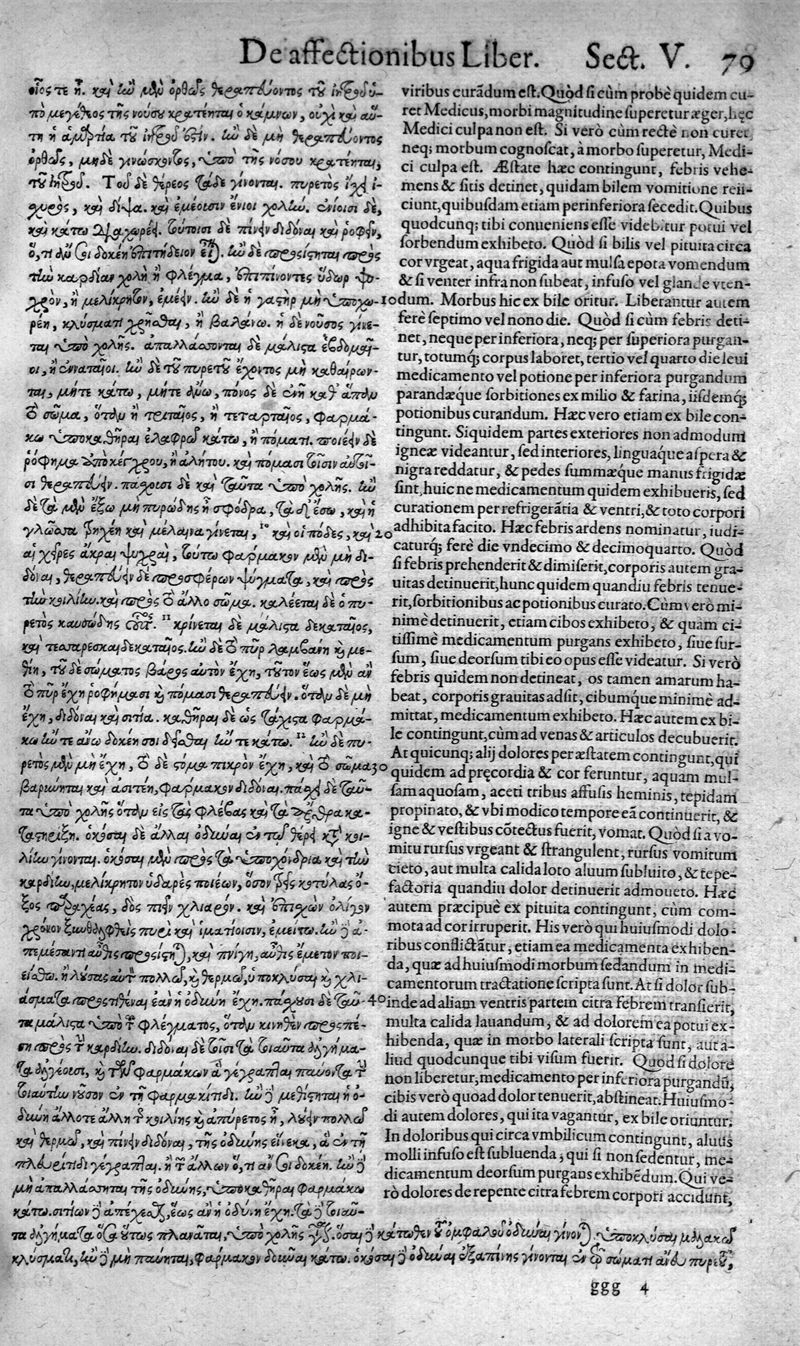 De affectionibus Liber. Sect. V. 79
οἷός τε ᾖ. καὶ ἢν μὲν ὀρθῶς θεραπεύοντος τοῦ ἰητροῦ ὑ-
πὸ μεγέθεος τῆς νούσου κρατέηται ὁ κάμνων, οὐχὶ καὶ αὕ-
τη ἡ ἁμαρτία τοῦ ἰητροῦ ἐστίν. ἢν δὲ μὴ θεραπεύοντος
ὀρθῶς, μηδὲ γινώσκοντος, ὑπὸ τῆς νόσου κρατέηται,
τοῦ ἰητροῦ. Τοῦ δὲ θέρεος τάδε γίνονται. πυρετὸς ἴχει ἰ-
χυρὸς, καὶ δίψα. καὶ ἐμέουσιν ἔνιοι χολήν. ἐνίοισι δὲ,
καὶ κάτω διαχωρέει. τούτοισι δὲ πίνειν διδόναι καὶ ῥοφεῖν,
ὅ, τι ἄν σοι δοκέῃ ἐπιτήδειον εἶναι. ἢν δὲ προσίστηται πρὸς
τὴν καρδίαν χολὴ ἢ φλέγμα, ἐπιπίνοντες ὕδωρ ψυ-
χρὸν, ἢ μελίκρητον, ἐμέειν. ἢν δὲ ἡ γαστὴρ μὴ ὑποχω-
ρέῃ, κλύσματι χρῆσθαι, ἢ βαλάνῳ. ἡ δὲ νοῦσος γίνε-
ται ὑπὸ χολῆς. ἀπαλλάσσονται δὲ μάλιστα ἑβδομαῖ-
οι, ἢ ἐναταῖοι. ἢν δὲ τοῦ πυρετοῦ ἔχοντος μὴ καθαίρων-
ται, μήτε κάτω, μήτε ἄνω, πόνος δὲ ἐνῇ καθ᾽ ἅπαν
τὸ σῶμα, ὅταν ἢ τριταῖος, ἢ τεταρταῖος, φαρμά-
κῳ ὑποκαθῆραι ἐλαφρῷ κάτω, ἢ πόματι. ποιέειν δὲ
ῥόφημα ἀπὸ κέγχρου, ἢ ἀλήτου. καὶ πόμασι τοῖσιν αὐτοῖ-
σι θεραπεύειν. πάχουσι δὲ καὶ ταῦτα ὑπὸ χολῆς. ἢν
δὲ τὰ μὲν ἔξω μὴ πυρώδης ᾖ σφόδρα, τὰ δ᾽ ἔσω, καὶ ἡ
γλῶσσα τρηχέη καὶ μέλαινα γίνεται, καὶ οἱ πόδες, καὶ
αἱ χεῖρες ἄκραι ψυχραὶ, τούτῳ φάρμακον μὲν μὴ δι-
δόναι, θεραπεύειν δὲ προσφέρων ψύγματα, καὶ πρὸς
τὴν κοιλίην. καὶ πρὸς τὸ ἄλλο σῶμα. καλέεται δὲ ὁ πυ-
ρετὸς καυσώδης οὗτος. κρίνεται δὲ μάλιστα δεκαταῖος,
καὶ τεσσαρεσκαιδεκαταῖος. ἢν δὲ τὸ πῦρ λαμβάνῃ καὶ με-
θίῃ, τοῦ δὲ σώματος βάρος αὐτὸν ἔχῃ, τοῦτον ἕως μὲν ἂν
τὸ πῦρ ἔχῃ ῥοφήμασι καὶ πόμασι θεραπεύειν. ὅταν δὲ μὴ
ἔχῃ, διδόναι καὶ σιτία. καθῆραι δὲ ὡς τάχιστα φαρμά-
κῳ ἤν τε ἄνω δοκέῃ σοι δεῖσθαι ἤν τε κάτω. ἢν δὲ πυ-
ρετὸς μὲν μὴ ἔχῃ, τὸ δὲ στόμα πικρὸν ἔχῃ, καὶ τὸ σῶμα
βαρύνηται καὶ ἀσιτέῃ, φάρμακον διδόναι. πάχει δὲ ταῦ-
τα ὑπὸ χολῆς ὅταν εἰς τὰς φλέβας καὶ τὰ ἄρθρα κα-
ταστηρίξῃ. ὁκόσαι δὲ ἄλλαι ὀδύναι ἐν τῷ θέρει κατὰ κοι-
λίην γίνονται. ὁκόσαι μὲν πρὸς τὰ ὑποχόνδρια καὶ τὴν
καρδίην, μελίκρητον ὑδαρὲς ποιέων, ὅσον τρεῖς κοτύλας ὄ-
ξος παραχέας, δὸς πιεῖν χλιαρόν. καὶ ἐπιχὼν ὀλίγον
χρόνον ξυνθαλφθεὶς πυρὶ καὶ ἱματίοισιν, ἐμείτω. ἢν δὲ ἀ-
πεμέσαντι αὖθις προσίστηται, καὶ πνίγῃ, αὖθις ἔμετον ποι-
είσθω. ἢ λούσας αὐτὸν πολλῷ, καὶ θερμῷ, ὑποκλύσαι καὶ χλι-
άσματα προστιθέναι ἐὰν ἡ ὀδύνη ἔχῃ. πάχουσι δὲ ταῦ-
τα μάλιστα ὑπὸ τοῦ φλέγματος, ὅταν κινηθὲν προσπέ-
σῃ πρὸς τὴν καρδίην. διδόναι δὲ τοῖσι τὰ τοιαῦτα ἀλγήμα-
τα ἀλγέουσι, καὶ τῶν φαρμάκων ἃ γέγραπται παύοντα τὴν
τοιαύτην νοῦσον ἐν τῇ φαρμακίτιδι. ἢν δὲ μεθίστηται ἡ ὀ-
δύνη ἄλλοτε ἄλλῃ τῆς κοιλίης καὶ ἀπύρετος ᾖ, λούειν πολλῷ
καὶ θερμῷ, καὶ πίνειν διδόναι, τῆς ὀδύνης εἵνεκα, ἃ ἐν τῇ
πλευρίτιδι γέγραπται. ἢ τῶν ἄλλων ὅ, τι ἄν σοι δοκέῃ. ἢν δὲ
μὴ ἀπαλλάσσηται τῆς ὀδύνης, ὑποκαθῆραι φαρμάκῳ
κάτω. σιτίων δὲ ἀπεχέσθω, ἕως ἂν ἡ ὀδύνη ἔχῃ. τὰ δὲ τοιαῦ-
τα ἀλγήματα ὅσα οὕτως πλανᾶται, ὑπὸ χολῆς γίνεται. ὅσαι δὲ κάτωθεν τοῦ ὀμφαλοῦ ὀδύναι γίνονται, ὑποκλύσαι μαλακῷ
κλύσματι, ἢν δὲ μὴ παύηται, φάρμακον δοῦναι κάτω. ὁκόσαι δὲ ὀδύναι ἐξαπίνης γίνονται ἐν τῷ σώματι ἄνευ πυρετοῦ,
viribus curãdum est. Quòd si cùm probè quidem cu-
ret Medicus, morbi magnitudine superetur æger, hęc
Medici culpa non est. Si verò cùm rectè non curet,
neq; morbum cognoscat, à morbo superetur, Medi-
ci culpa est. Æstate hæc contingunt, febris vehe-
mens & sitis detinet, quidam bilem vomitione reii-
ciunt, quibusdam etiam per inferiora secedit. Quibus
quodcunq; tibi conueniens esse videbitur potui vel
sorbendum exhibeto. Quòd si bilis vel pituita circa
cor vrgeat, aqua frigida aut mulsa epota vomendum
& si venter infrà non subeat, infuso vel glande vten-
10 dum. Morbus hic ex bile oritur. Liberantur autem
ferè septimo vel nono die. Quòd si cùm febris deti-
net, neque per inferiora, neq; per superiora purgan-
tur, totumq; corpus laboret, tertio vel quarto die leui
medicamento vel potione per inferiora purgandum
parandæque sorbitiones ex milio & farina, iisdemq;
potionibus curandum. Hæc vero etiam ex bile con-
tingunt. Siquidem partes exteriores non admodum
igneæ videantur, sed interiores, linguaque aspera &
nigra reddatur, & pedes summæque manus frigidæ
sint, huic ne medicamentum quidem exhibueris, sed
curationem per refrigerãtia & ventri, & toto corpori
20 adhibita facito. Hæc febris ardens nominatur, iudi-
caturq; ferè die vndecimo & decimoquarto. Quòd
si febris prehenderit & dimiserit, corporis autem gra-
uitas detinuerit, hunc quidem quandiu febris tenue-
rit, sorbitionibus ac potionibus curato. Cùm verò mi-
nimè detinuerit, etiam cibos exhibeto, & quam ci-
tissimè medicamentum purgans exhibeto, siue sur-
sum, siue deorsum tibi eo opus esse videatur. Si verò
febris quidem non detineat, os tamen amarum ha-
beat, corporis grauitas adsit, cibumque minimè ad-
mittat, medicamentum exhibeto. Hæc autem ex bi-
le contingunt, cùm ad venas & articulos decubuerit.
At quicunq; alij dolores per æstatem contingunt, qui
30 quidem ad pręcordia & cor feruntur, aquam mul-
sam aquosam, aceti tribus affusis heminis, tepidam
propinato, & vbi modico tempore eã continuerit, &
igne & vestibus cõtectus fuerit, vomat. Quòd si a vo-
mitu rursus vrgeant & strangulent, rursus vomitum
cieto, aut multa calida loto aluum subluito, & tepe-
factoria quandiu dolor detinuerit admoueto. Hæc
autem præcipuè ex pituita contingunt, cùm com-
mota ad cor irruperit. His verò qui huiusmodi dolo-
ribus conflictãtur, etiam ea medicamenta exhiben-
da, quæ ad huiusmodi morbum sedandum in medi-
camentorum tractatione scripta sunt. At si dolor sub-
40 inde ad aliam ventris partem citra febrem transierit,
multa calida lauandum, & ad dolorem ea potui ex-
hibenda, quæ in morbo laterali scripta sunt, aut a-
liud quodcunque tibi visum fuerit. Quod si dolore
non liberetur, medicamento per inferiora purgandũ,
cibis verò quoad dolor tenuerit, abstineat. Huiusmo-
di autem dolores, qui ita vagantur, ex bile oriuntur.
In doloribus qui circa vmbilicum contingunt, aluus
molli infuso est subluenda; qui si non sedentur, me-
dicamentum deorsum purgans exhibẽdum. Qui ve-
rò dolores de repente citra febrem corpori accidunt,
ggg 4